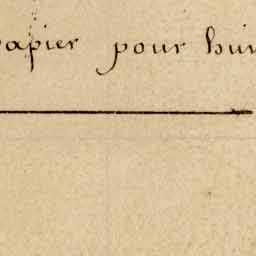 papier pour hui